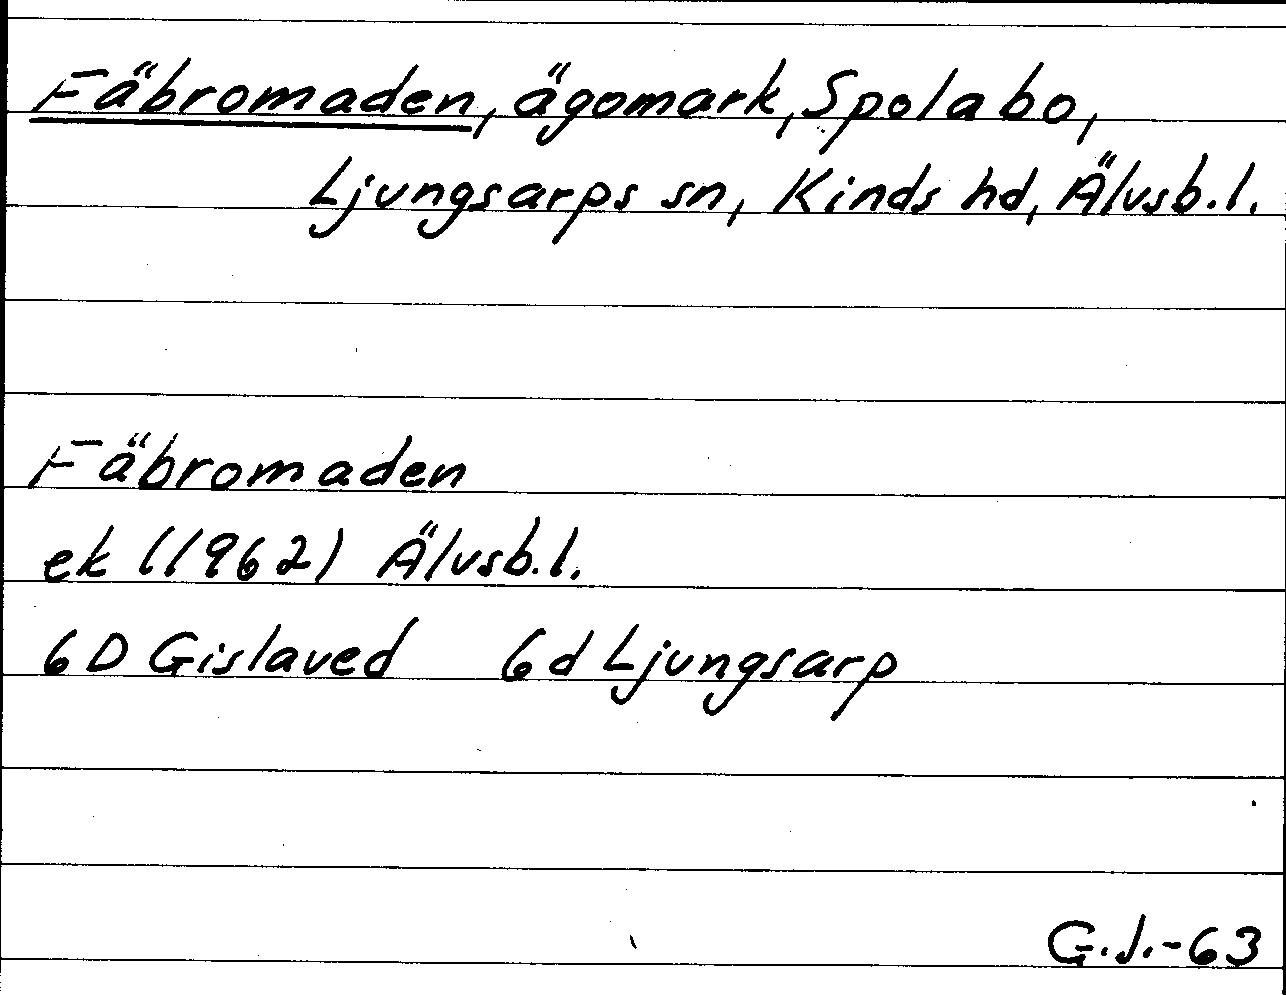 Fäbromaden, ägomark, Spolabo,
Ljungsarps sn, Kinds hd, Älvsb.l.
Fäbromaden
ek (1962) Älvsb.l.
6D Gislaved 6d Ljungsarp
G.J.-63